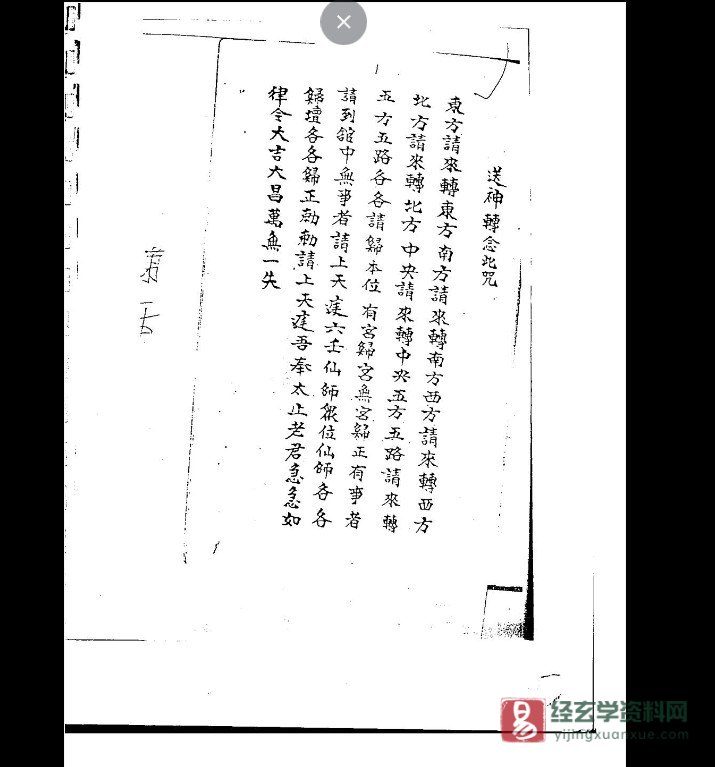 送神轉念此咒
東方請來轉東方南方請來轉南方西方請來轉西方
北方請來轉北方中央請來轉中央五方五路請來轉
五方五路各各請歸本位有宮歸宮無宮歸正有事者
請到舘中無事者請上天庭六壬仙師眾位仙師各各
歸壇各各歸正勅勅請上天庭吾奉太上老君急急如
律令大吉大昌萬無一失
易
经玄学资料网
yijingxuanxue.com